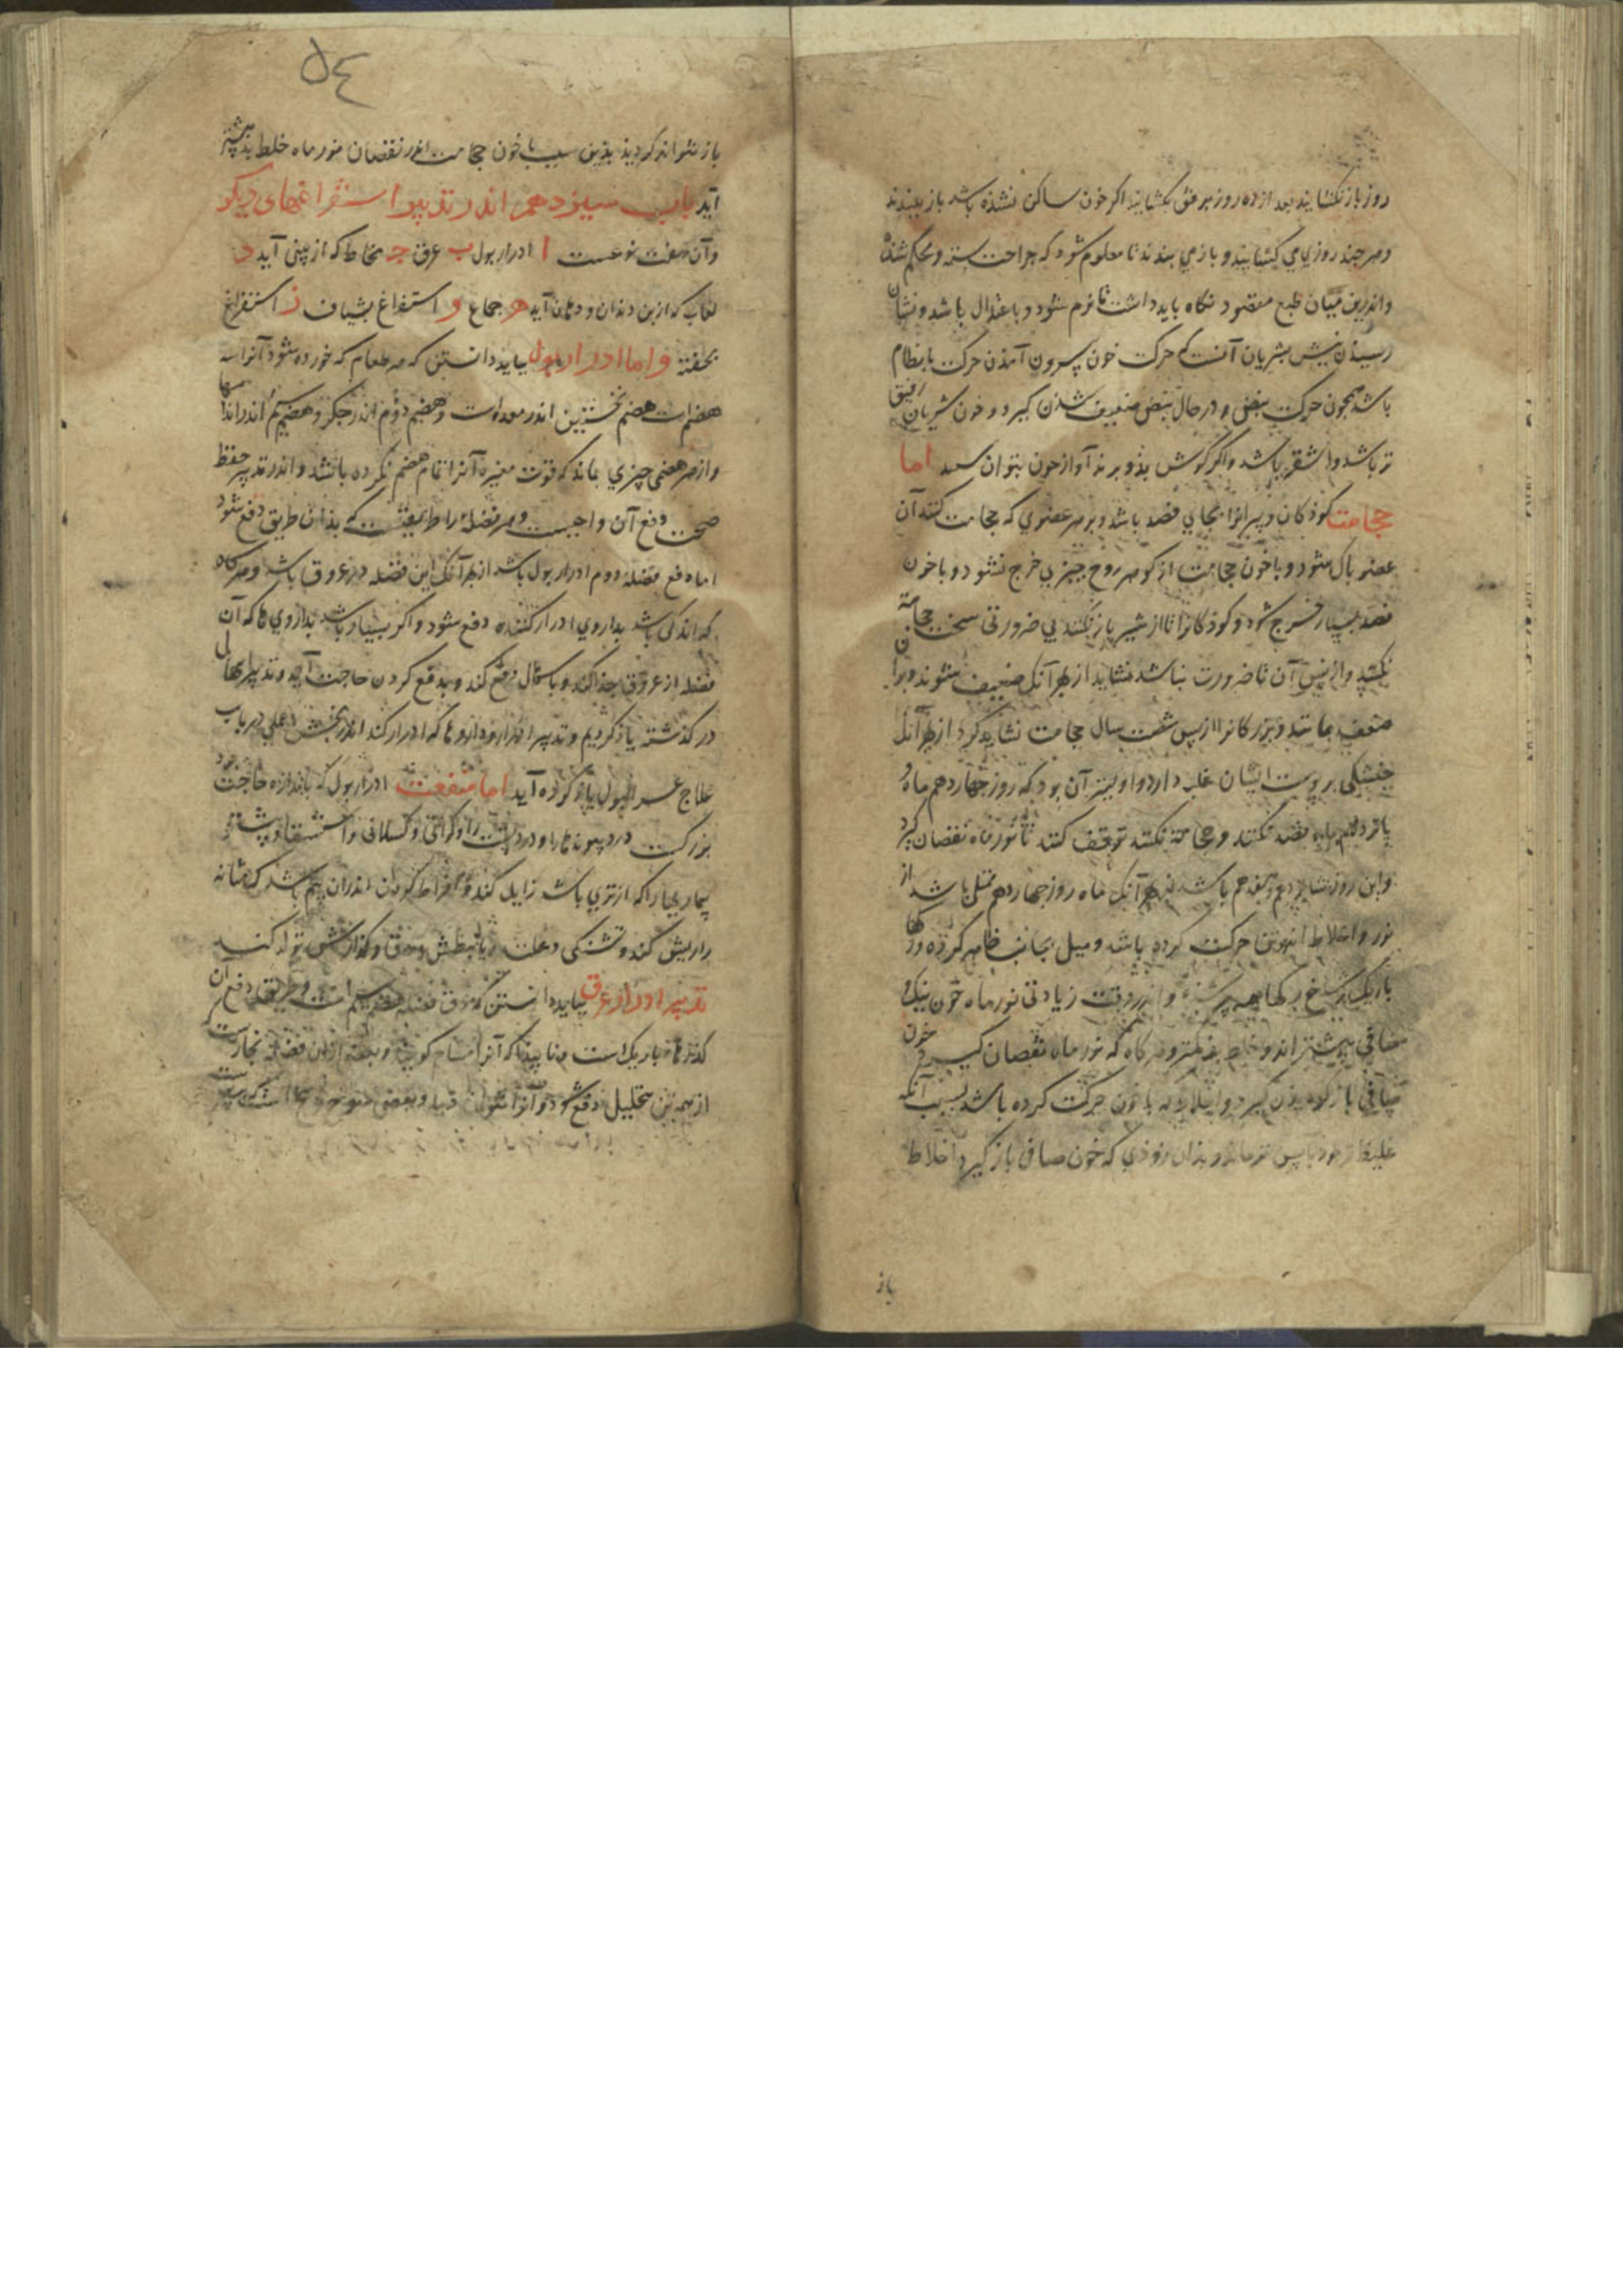 روز باز نکشایند بعد از ده روز برفق بکشایند اکر خون ساکن نشذه باشد باز ببندند
و هر چند روزی می کشایند و باز می بندند تا معلوم شود که جراحت بسته و محکم شذه
و اندرین میان طبع مقصود نکاه باید داشت تا نرم شود و باعتدال باشد و نشان
رسیدن نیش بشریان آنست که حرکت خون بیرون آمدن حرکت بانظام
باشد همچون حرکت نبض و در حال نبض ضعیف شدن کیرد و خون شریان رقیق
تر باشد و اشقر باشد و اکر کوش بذو برند آواز خون بتوان اما
حجامت کوذکان و پیرانرا بجای فصد باشد و بر هر عضوی که حجامت کنند آن
عضو پاک شود و با خون حجامت از کوهر روح چیزی خرج نشود و با خون
فصد بسیار خرج شود و کوذکانرا تا از شیر باز نکنند بی ضرورتی سخت حجامة
نکنند و از پس آن تا ضرورت نباشد نشاید از بهر آنک ضعیف شوند و بران
ضعف بمانند و بزرکانرا از پس شصت سال حجامت نشاید کرد از بهر آنک
خشکی بر پوست ایشان غلبه دارد و اولیتر آن بود که روز چهاردهم ماه و
پانزدهم ماه فصد نکنند و حجامة نکنند توقف کنند تا نور ماه نقصان کیرد
و این روز شانزدهم و هفدهم باشد از بهر آنک ماه روز چهاردهم ممتلی باشد از
نور و اخلاط اندر تنها حرکت کرده باشد و میل بجانب ظاهر کرده و رکها
باریک و شاخ رکها همه پر شذه و اندر وقت زیادتی نور ماه خون نیک و
صافی بیشتر آید و خلط بذ کمتر و هر کاه که نور ماه نقصان کیرد خون
صافی باز کشتن کیرد و اخلاط که با خون حرکت کرده باشد بسبب آنکه
غلیظ تر بود باپس تر ماند و بذان زوذی که خون صافی باز کیرد اخلاط
باز
٥٤
باز نتواند کردیذ بذین سبب با خون حجامت اندر نقصان نور ماه خلط بذ بیشتر
آید باب سیزدهم اندر تدبیر استفراغهای دیکر
و آن هفت نوعست ا ادرار بول ب عرق ج مخاط که از بینی آید د
لعاب که از بن دندان و دهان آید ه جماع و استفراغ بشیاف ز استفراغ
بحقنه و اما ادرار بول بباید دانستن که هر طعام که خورده شود آنرا سه
هضم است هضم نخستین اندر معده است و هضم دوم اندر جکر و هضم سیم اندر اندامها
و از هر هضمی چیزی بماند که قوت مغیره آنرا تمام هضم نکرده باشد و اندر تدبیر حفظ
صحت دفع آن واجبست و هر فضله را طریقیست که بذان طریق دفع شود
اما دفع فضله دوم ادرار بول باشد از بهر آنک این فضله در عروق باشد و هر کاه
که اندکی باشد بداروی ادرار کننده دفع شود و اکر بسیار باشد بداروی ها که آن
فضله از عروق جذب کند و باسهال دفع کند و بدفع کردن حاجت آید و تدبیر اسهال
در کذشته یاذ کردیم و تدبیر افزار و داروها که ادرار کند اندر بخش عملی در باب
علاج عسر البول یاذ کرده آید اما منفعت ادرار بول که باندازه حاجت بود
بزرکست درد پیوندها را و درد پشت را و کرانی و کسلانی و استسقا و بیشتر
بیماریها را که از تری باشد زایل کند و بافراط کردن اندر آن بیم باشد که مثانه
را ریش کند و تشنکی و علت دیابیطس و دق و کدازش تولد کند
تدبیر ادرار عرق بباید دانستن که عرق فضله هضم سیم است و طریق دفع آن
کذرهاء باریک است و ناپیدا که آنرا مسام کویند و بعضی از آن فضله بخارست
از همه تن بتحلیل دفع شود و آنرا نتوان دید و بعضی